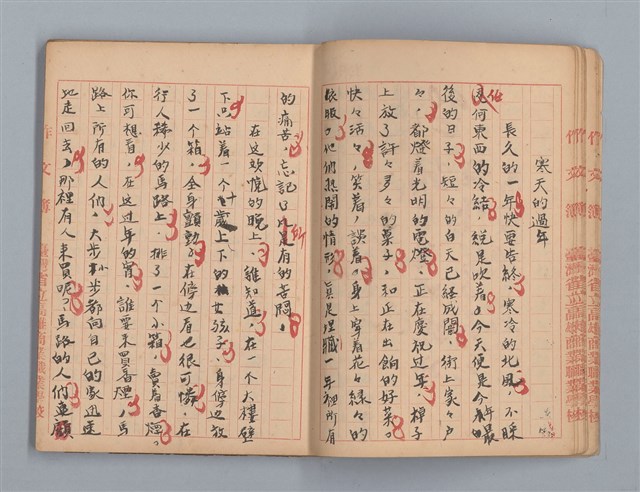 寒天的過年
長久的一年快要告終，寒冷的北風，不睬
何東西的冷結，總是吹着。今天便是今年最
後的日子，短々的白天已經成闇，街上家々戶
々，都燈着光明的電燈，正在慶祝过年，棹子
上放了許々多々的菓子，和正在出餉的好菜。
快々活々，笑着，談着，身上穿着花々綠々的
衣服。他們熱鬧的情形，真是埋職一年裡所有
的痛苦，忘記以此是有的苦悶。
在这欢悅的晚上，誰知道，在一个大樓壁
下只站着一个十歲上下的女孩子，身傍边放
了一个箱，全身顫動。在傍边看也很可憐，在
行人稀少的馬路上，排了一个小箱，賣着香煙。
你可想着，在这过年的宵，誰要来買香煙，馬
路上所有的人們，大步小步都向自己的家迅速
地走回去，那裡有人来買呢？馬路的人們連顧
作文簿